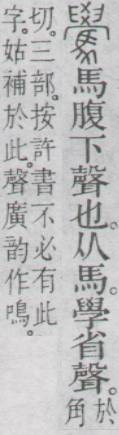 䮸馬腹下聲也。从馬。學省聲。於角
切。三部。按許書不必有此
字。姑補於此。聲廣韵作鳴。